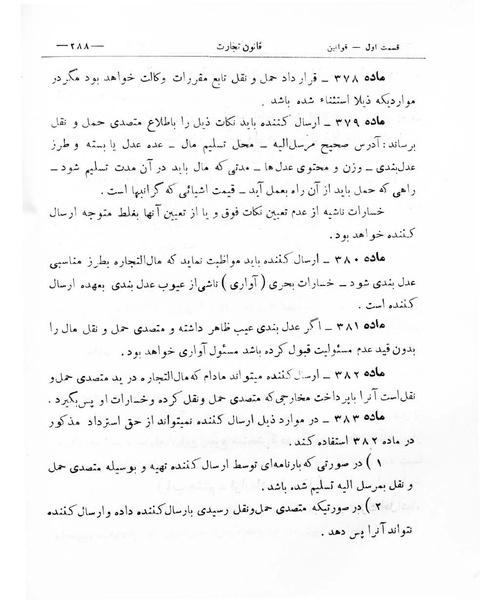 قسمت اول — قوانین
قانون تجارت
—۲۸۸—
ماده ۳۷۸ ـ قرارداد حمل و نقل تابع مقررات وکالت خواهد بود مگردر
مواردیکه ذیلا استثناء شده باشد .
ماده ۳۷۹ ـ ارسال کننده باید نکات ذیل را باطلاع متصدی حمل و نقل
برساند : آدرس صحیح مرسل‌الیه ـ محل تسلیم مال ـ عده عدل یا بسته و طرز
عدل‌بندی ـ وزن و محتوی عدل‌ها ـ مدتی که مال باید در آن مدت تسلیم شود ـ
راهی که حمل باید از آن راه بعمل آید ـ قیمت اشیائی که گرانبها است .
خسارات ناشیه از عدم تعیین نکات فوق و یا از تعیین آنها بغلط متوجه ارسال
کننده خواهد بود .
ماده ۳۸۰ ـ ارسال کننده باید مواظبت نماید که مال‌التجاره بطرز مناسبی
عدل بندی شود ـ خسارات بحری ( آواری ) ناشی‌از عیوب عدل بندی بعهده ارسال
کننده است .
ماده ۳۸۱ ـ اگر عدل بندی عیب ظاهر داشته و متصدی حمل و نقل مال را
بدون قید عدم مسئولیت قبول کرده باشد مسئول آواری خواهد بود .
ماده ۳۸۲ ـ ارسال‌کننده میتواند مادام که‌مال‌التجاره در ید متصدی حمل‌و
نقل‌است آنرا باپرداخت مخارجی‌که متصدی حمل‌و نقل کرده وخسارات او پس‌بگیرد .
ماده ۳۸۳ ـ در موارد ذیل ارسال کننده نمیتواند از حق استرداد مذکور
در ماده ۳۸۲ استفاده کند .
۱ ) در صورتی که‌بارنامه‌ای توسط ارسال کننده تهیه و بوسیله متصدی حمل
و نقل بمرسل الیه تسلیم شده باشد .
۲ ) در صورتیکه متصدی حمل‌ونقل رسیدی بارسال‌کننده داده وارسال کننده
نتواند آنرا پس دهد .